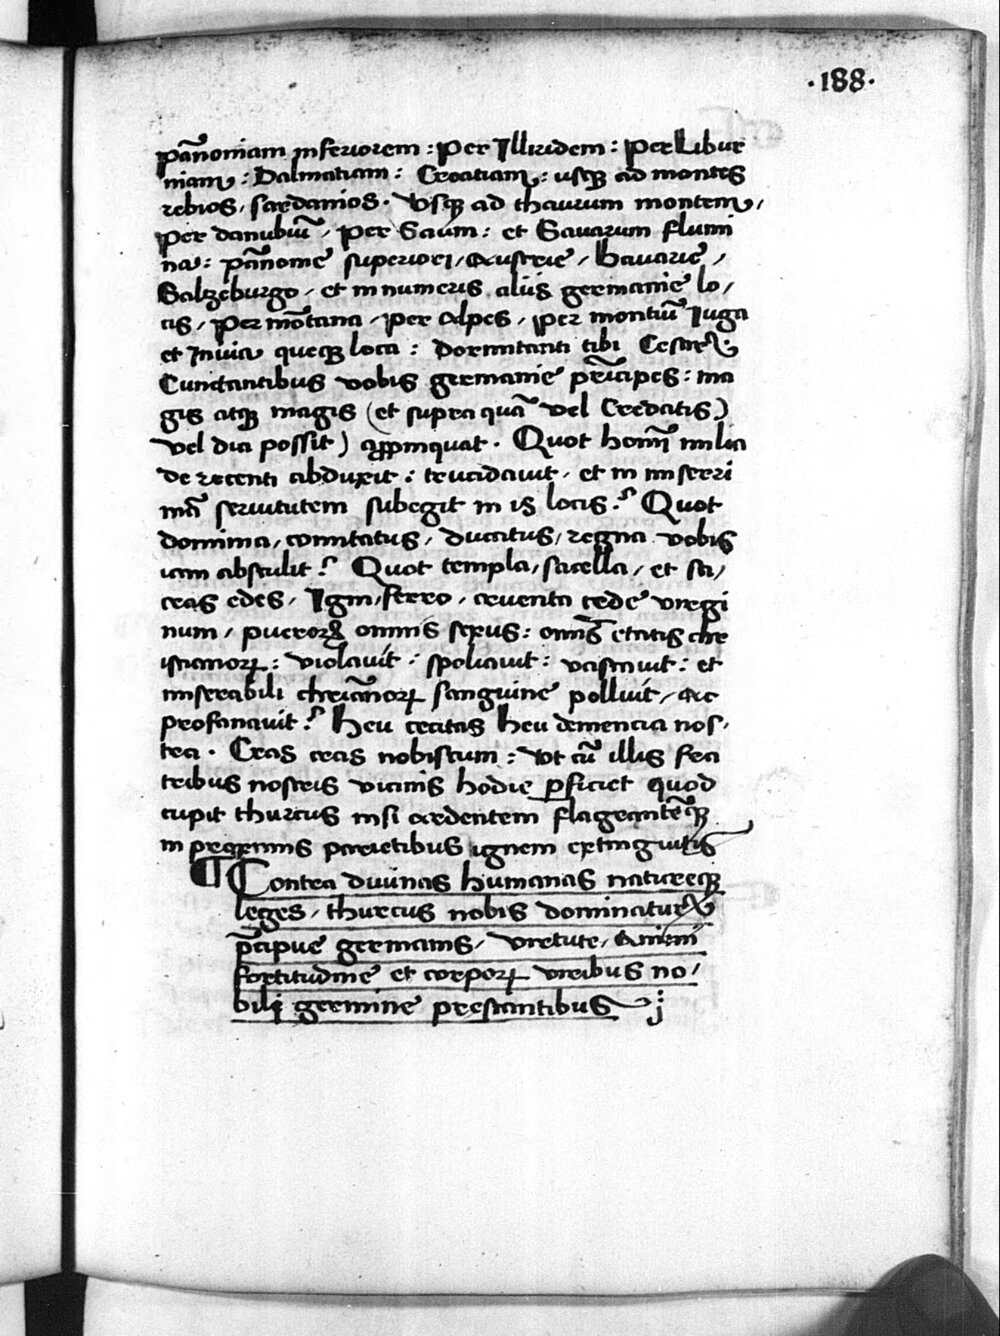 ·188·
pãnoniam inferiorem : per Illiridem : per Libur
niam : Dalmatiam : Croatiam : usq ad montes
rebios, sardanios. Vsq ad thaurum montem,
per danubiũ, per Saum : et Sauarum flumi
na : pãnonie superiori, Austrie, bauarie,
Salzeburgo, et in numeris aliis germanie lo,
cis, per mõtana, per Alpes, per montiũ Iuga
et Inuia queq loca : dormitanti tibi Cesar
Cunctantibus vobis germanie prīcipes : ma
gis atq magis (et supra quã vel Credatis)
vel dici possit) appinquat. Quot homī milia
de recenti abduxit : trucidauit, et in miserri
mã seruitutem subegit in is locis ? Quot
dominia, comitatus, ducatus, regna vobis
iam abstulit ? Quot templa, sacella, et sa,
cras edes, Igni, ferro, cruenta cede virgi
num, pueror omnis sexus : omīs etatis chr
istianor : violauit : spoliauit : vastauit : et
miserabili chrīanor sanguine polluit, ac
profanauit ? heu cecitas heu demencia nos,
tra. Cras cras nobiscum : vt cũ illis fra
tribus nostris vicinis hodie pficiet quod
cupit thurcus nisi ardentem flagrantēq
in proximis parietibus ignem extinguitis
¶ Contra diuinas humanas natureq
leges, thurcus nobis dominatur
p̄cipue germanis, virtute, Animi
fortitudine et corpor viribus no,
bili germine prestantibus